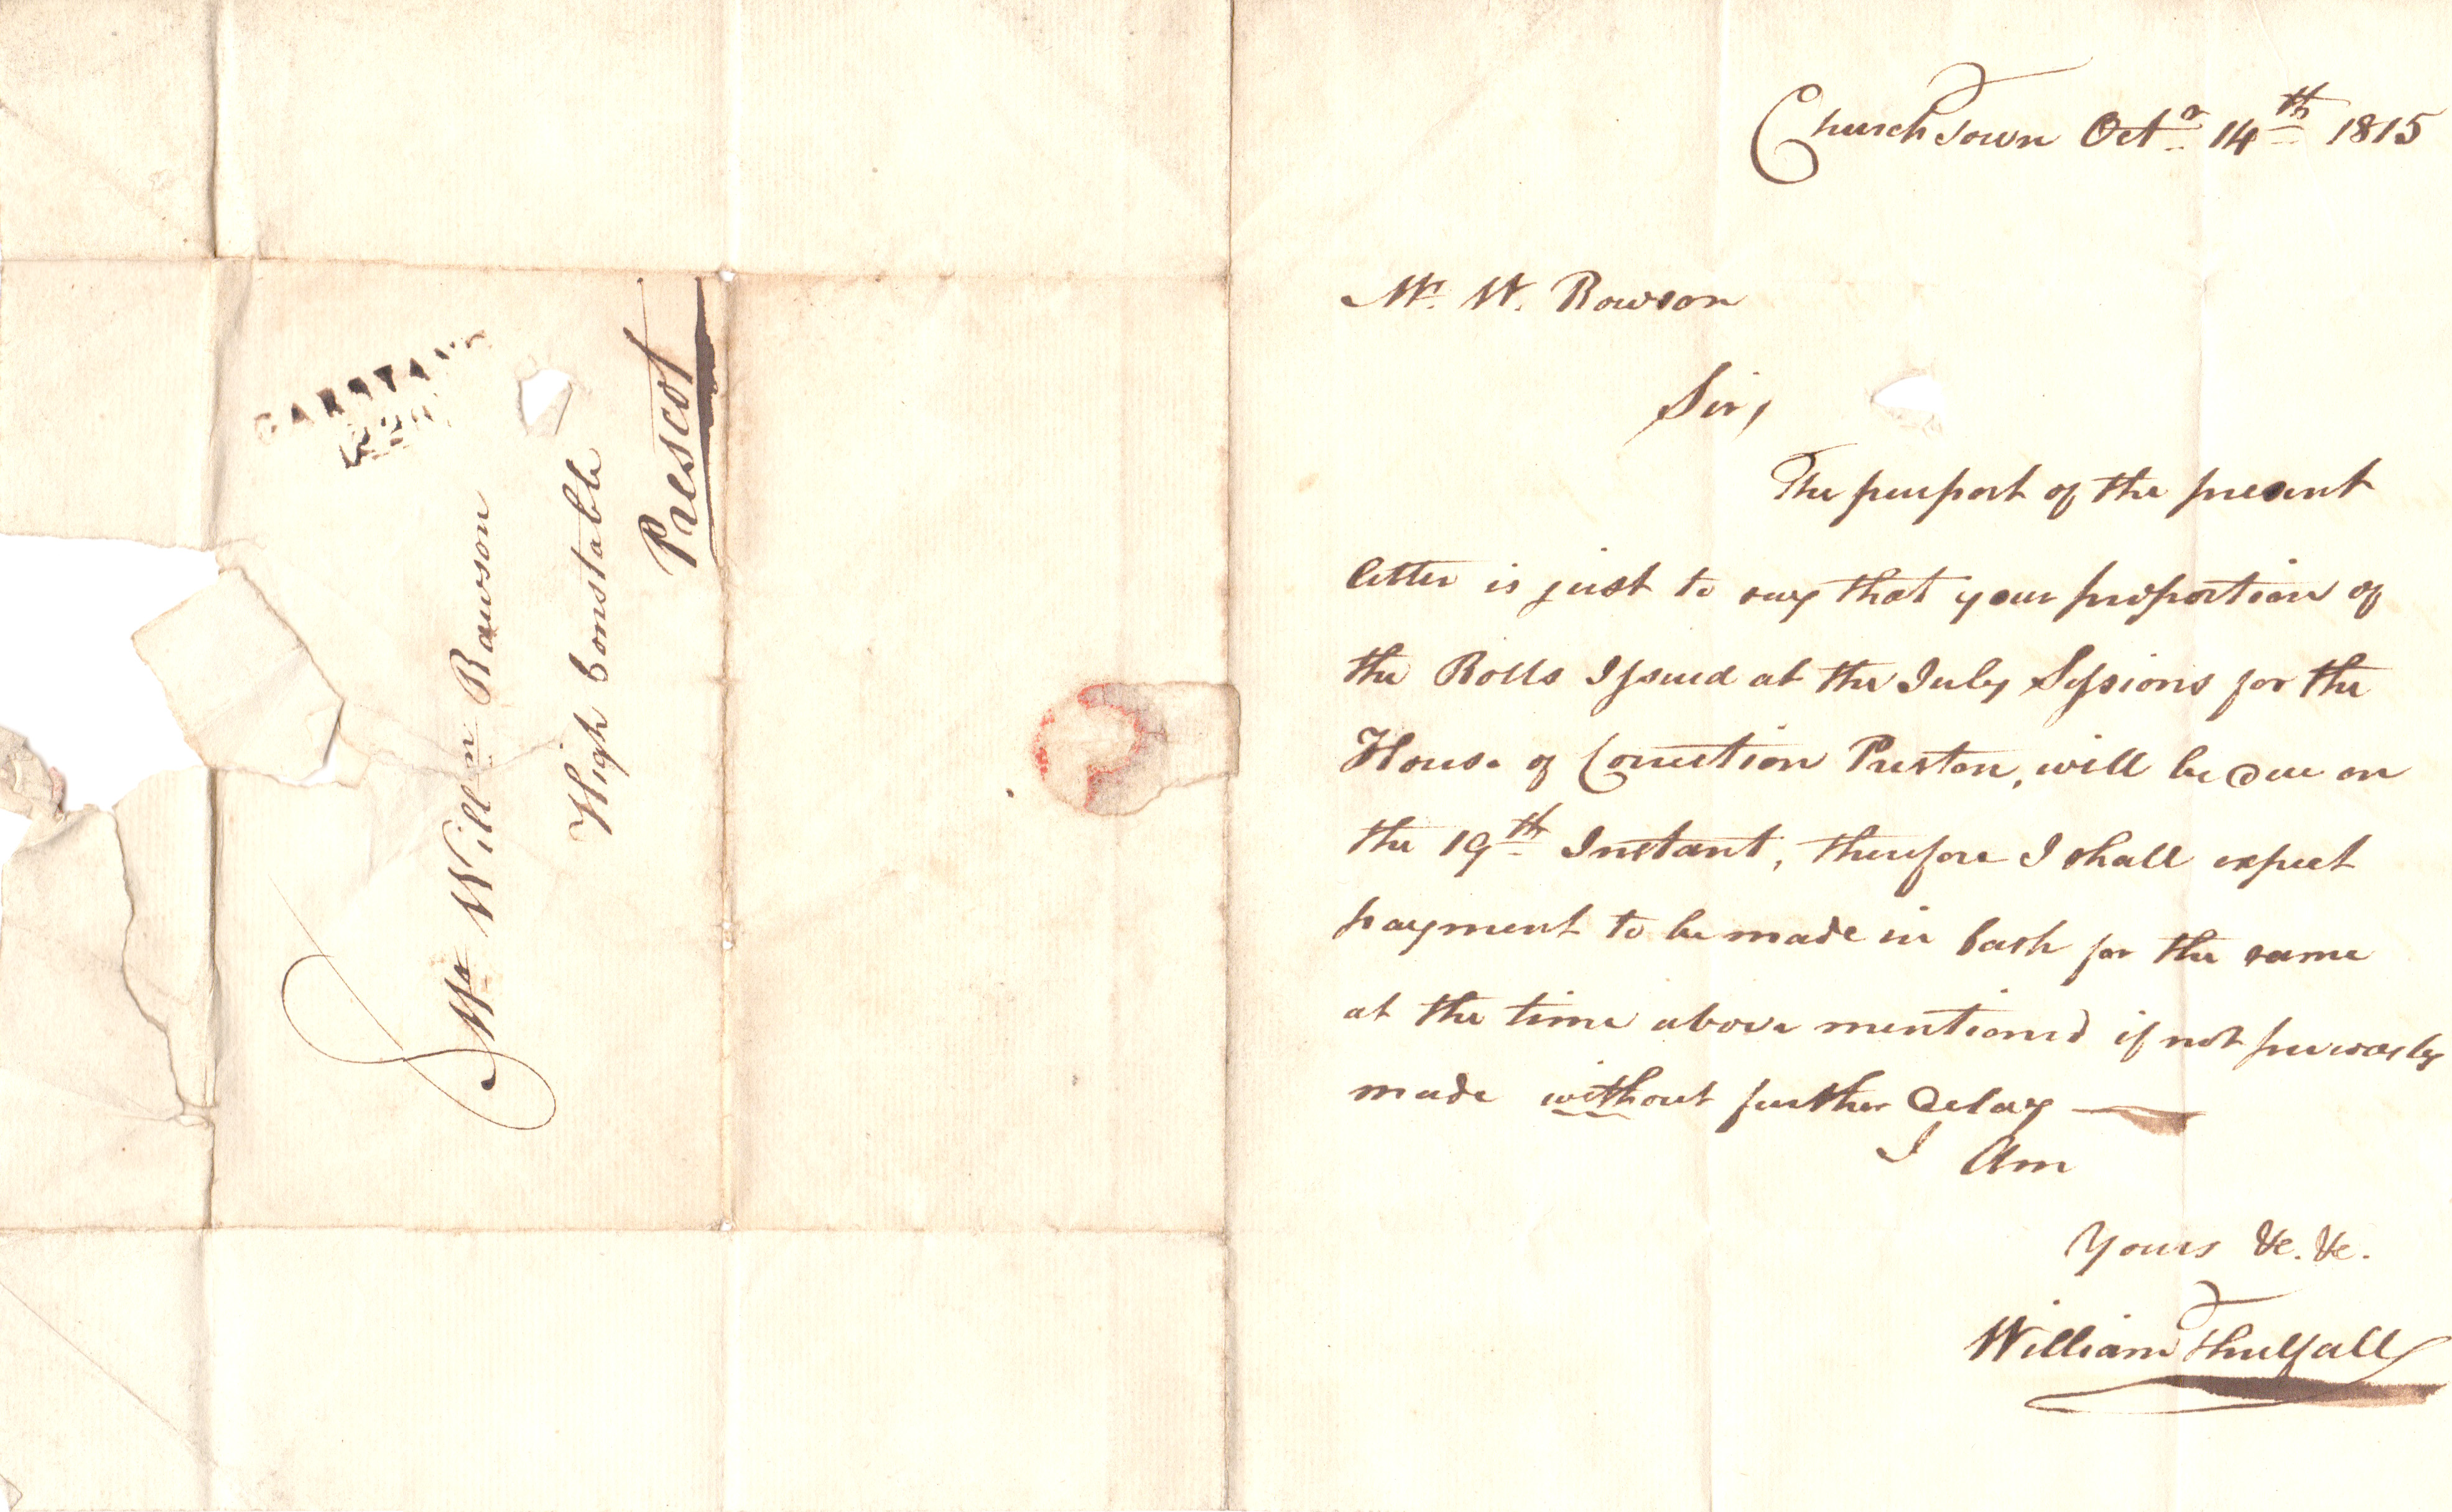 Church Town Octr 14th 1815
Mr. W. Rowson
Sir,
The purport of the present
letter is just to say that your proportion of
the Rolls Issued at the July Sessions for the
House of Correction Preston, will be due on
the 19th Instant, therefore I shall expect
payment to be made in Cash for the same
at the time above mentiond if not
made without further delay —
I Am
Yours &c. &c.
William Threlfall
GARSTANG
Mr Willm Rawson
High Constable
Prescot